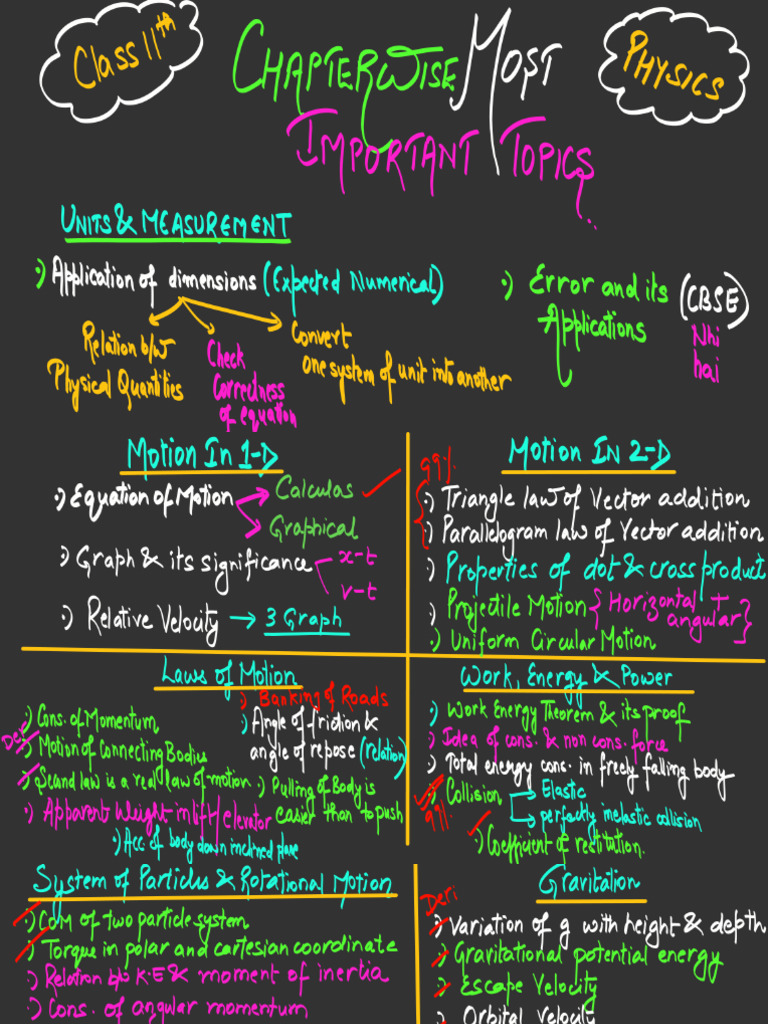 Class 11th
CHAPTERWISE MOST
IMPORTANT TOPICS
PHYSICS
UNITS & MEASUREMENT
•) Application of dimensions (Expected Numerical)
Relation b/w
Physical Quantities
Check
Correctness
of equation
Convert
one system of unit into another
•) Error and its
Applications
(CBSE)
Nhi
hai
Motion In 1-D
•) Equation of Motion
Calculas
Graphical
•) Graph & its significance
x-t
v-t
•) Relative Velocity → 3 Graph
Motion IN 2-D
99%
•) Triangle law of Vector addition
•) Parallelogram law of Vector addition
•) Properties of dot & cross product
•) Projectile Motion { Horizontal +
angular }
•) Uniform Circular Motion
Laws of Motion
•) Banking of Roads
•) Cons. of Momentum
•) Angle of friction &
angle of repose (relation)
Der
•) Motion of Connecting Bodies
•) Second law is a real law of motion
•) Pulling of Body is
easier than to push
•) Apparent Weight in lift/elevator
•) Acc of body down inclined plane
Work, Energy & Power
•) Work Energy Theorem & its proof
•) Idea of cons. & non cons. force
•) Total energy cons. in freely falling body
•) Collision
Elastic
perfectly inelastic collision
99%
•) Coefficient of restitution.
System of Particles & Rotational Motion
•) COM of two particle system
•) Torque in polar and cartesian coordinate
•) Relation b/w K.E & moment of inertia
•) Cons. of angular momentum
Gravitation
Deri
•) Variation of g with height & depth
•) Gravitational potential energy
•) Escape Velocity
•) Orbital Velocity